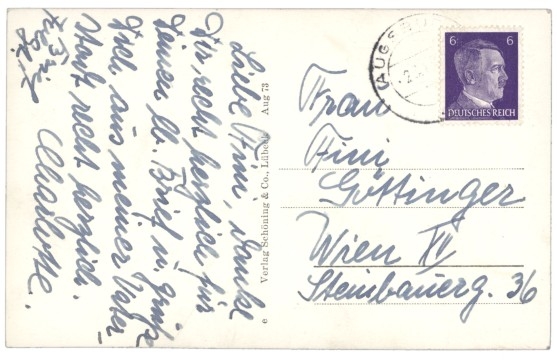 Liebe Fini, danke
Dir recht herzlich für
Deinen lb. Brief u. grüße
Dich aus meiner Vater-
stadt recht herzlich.
Charlotte.
e Verlag Schöning & Co., Lübeck Aug 73
AUGS
6 6
DEUTSCHES REICH
Frau
Fini
Göttinger
Wien XII
Steinbauerg. 36